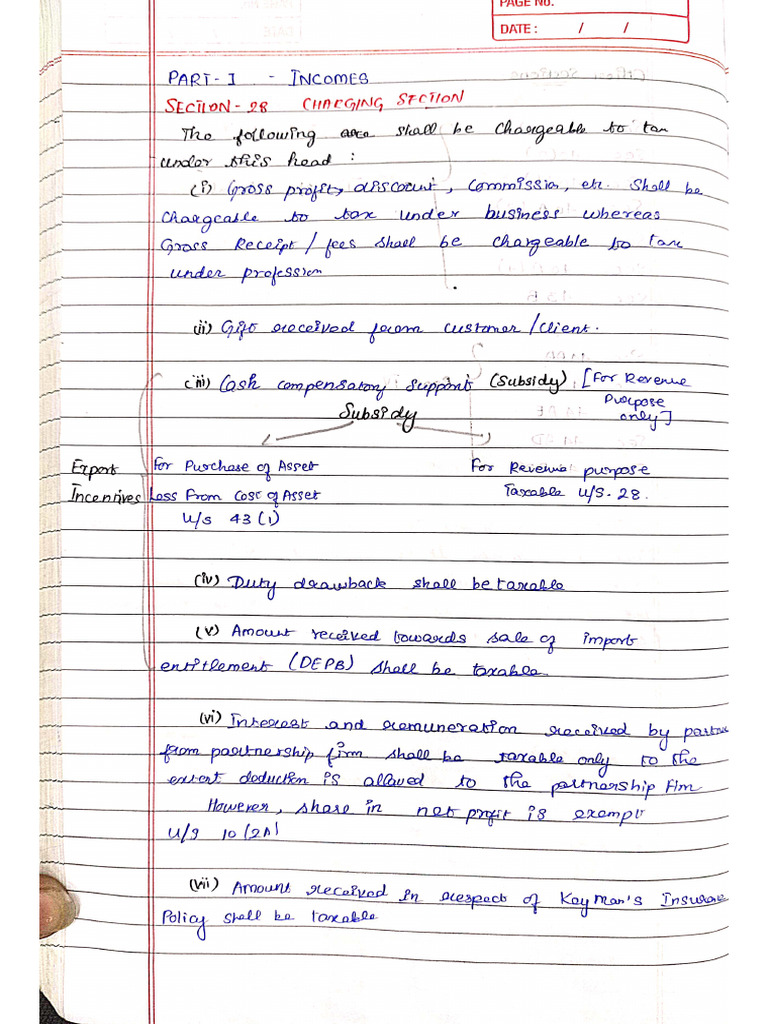 PAGE No.
DATE : / /
PART-I - INCOMES
SECTION-28 CHARGING SECTION
The following are shall be chargeable to tax
under this head :
(i) Gross profit, discount, commission, etc. shall be
chargeable to tax under business whereas
Gross Receipt / fees shall be chargeable to tax
under profession
(ii) Gift received from customer/client.
(iii) Cash compensatory support (Subsidy) [For Revenue
Purpose
only]
Subsidy
For Purchase of Asset For Revenue purpose
Export
Incentives Less From Cost of Asset Taxable U/S. 28.
U/s 43(1)
(iv) Duty drawback shall be taxable
(v) Amount received towards sale of import
entitlement (DEPB) shall be taxable.
(vi) Interest and remuneration received by partne
from partnership firm shall be taxable only to the
extent deduction is allowed to the partnership firm
However, share in net profit is exempt
U/s 10(2A)
(vii) Amount received in respect of Keyman's Insurance
Policy shall be taxable